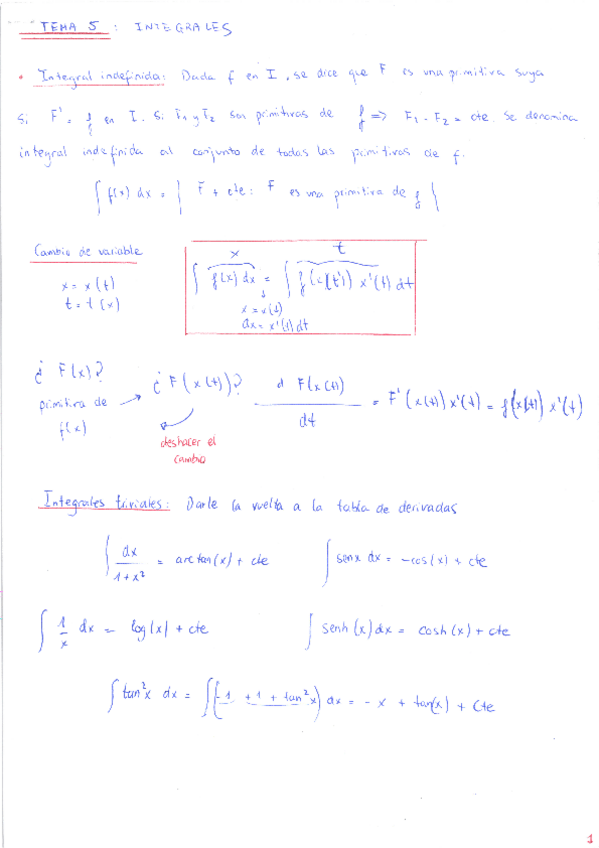 TEMA 5 : INTEGRALES
• Integral indefinida: Dada f en I, se dice que F es una primitiva suya
si F' = f en I. Si F₁ y F₂ son primitivas de f ⇒ F₁ - F₂ = cte. Se denomina
integral indefinida al conjunto de todas las primitivas de f.
∫ f(x) dx = { F + cte : F es una primitiva de f }
Cambio de variable
x = x(t)
t = t(x)
x t
∫ f(x) dx = ∫ f(x(t)) x'(t) dt
x = x(t)
dx = x'(t) dt
¿ F(x)?
primitiva de
f(x)
→ ¿ F(x(t))?
deshacer el
cambio
d F(x(t)) / dt = F'(x(t)) x'(t) = f(x(t)) x'(t)
Integrales triviales: Darle la vuelta a la tabla de derivadas
∫ dx / 1+x² = arctan(x) + cte ∫ senx dx = -cos(x) + cte
∫ 1/x dx = log(x) + cte ∫ senh(x) dx = cosh(x) + cte
∫ tan²x dx = ∫ (-1 + 1 + tan²x) dx = - x + tan(x) + cte
1